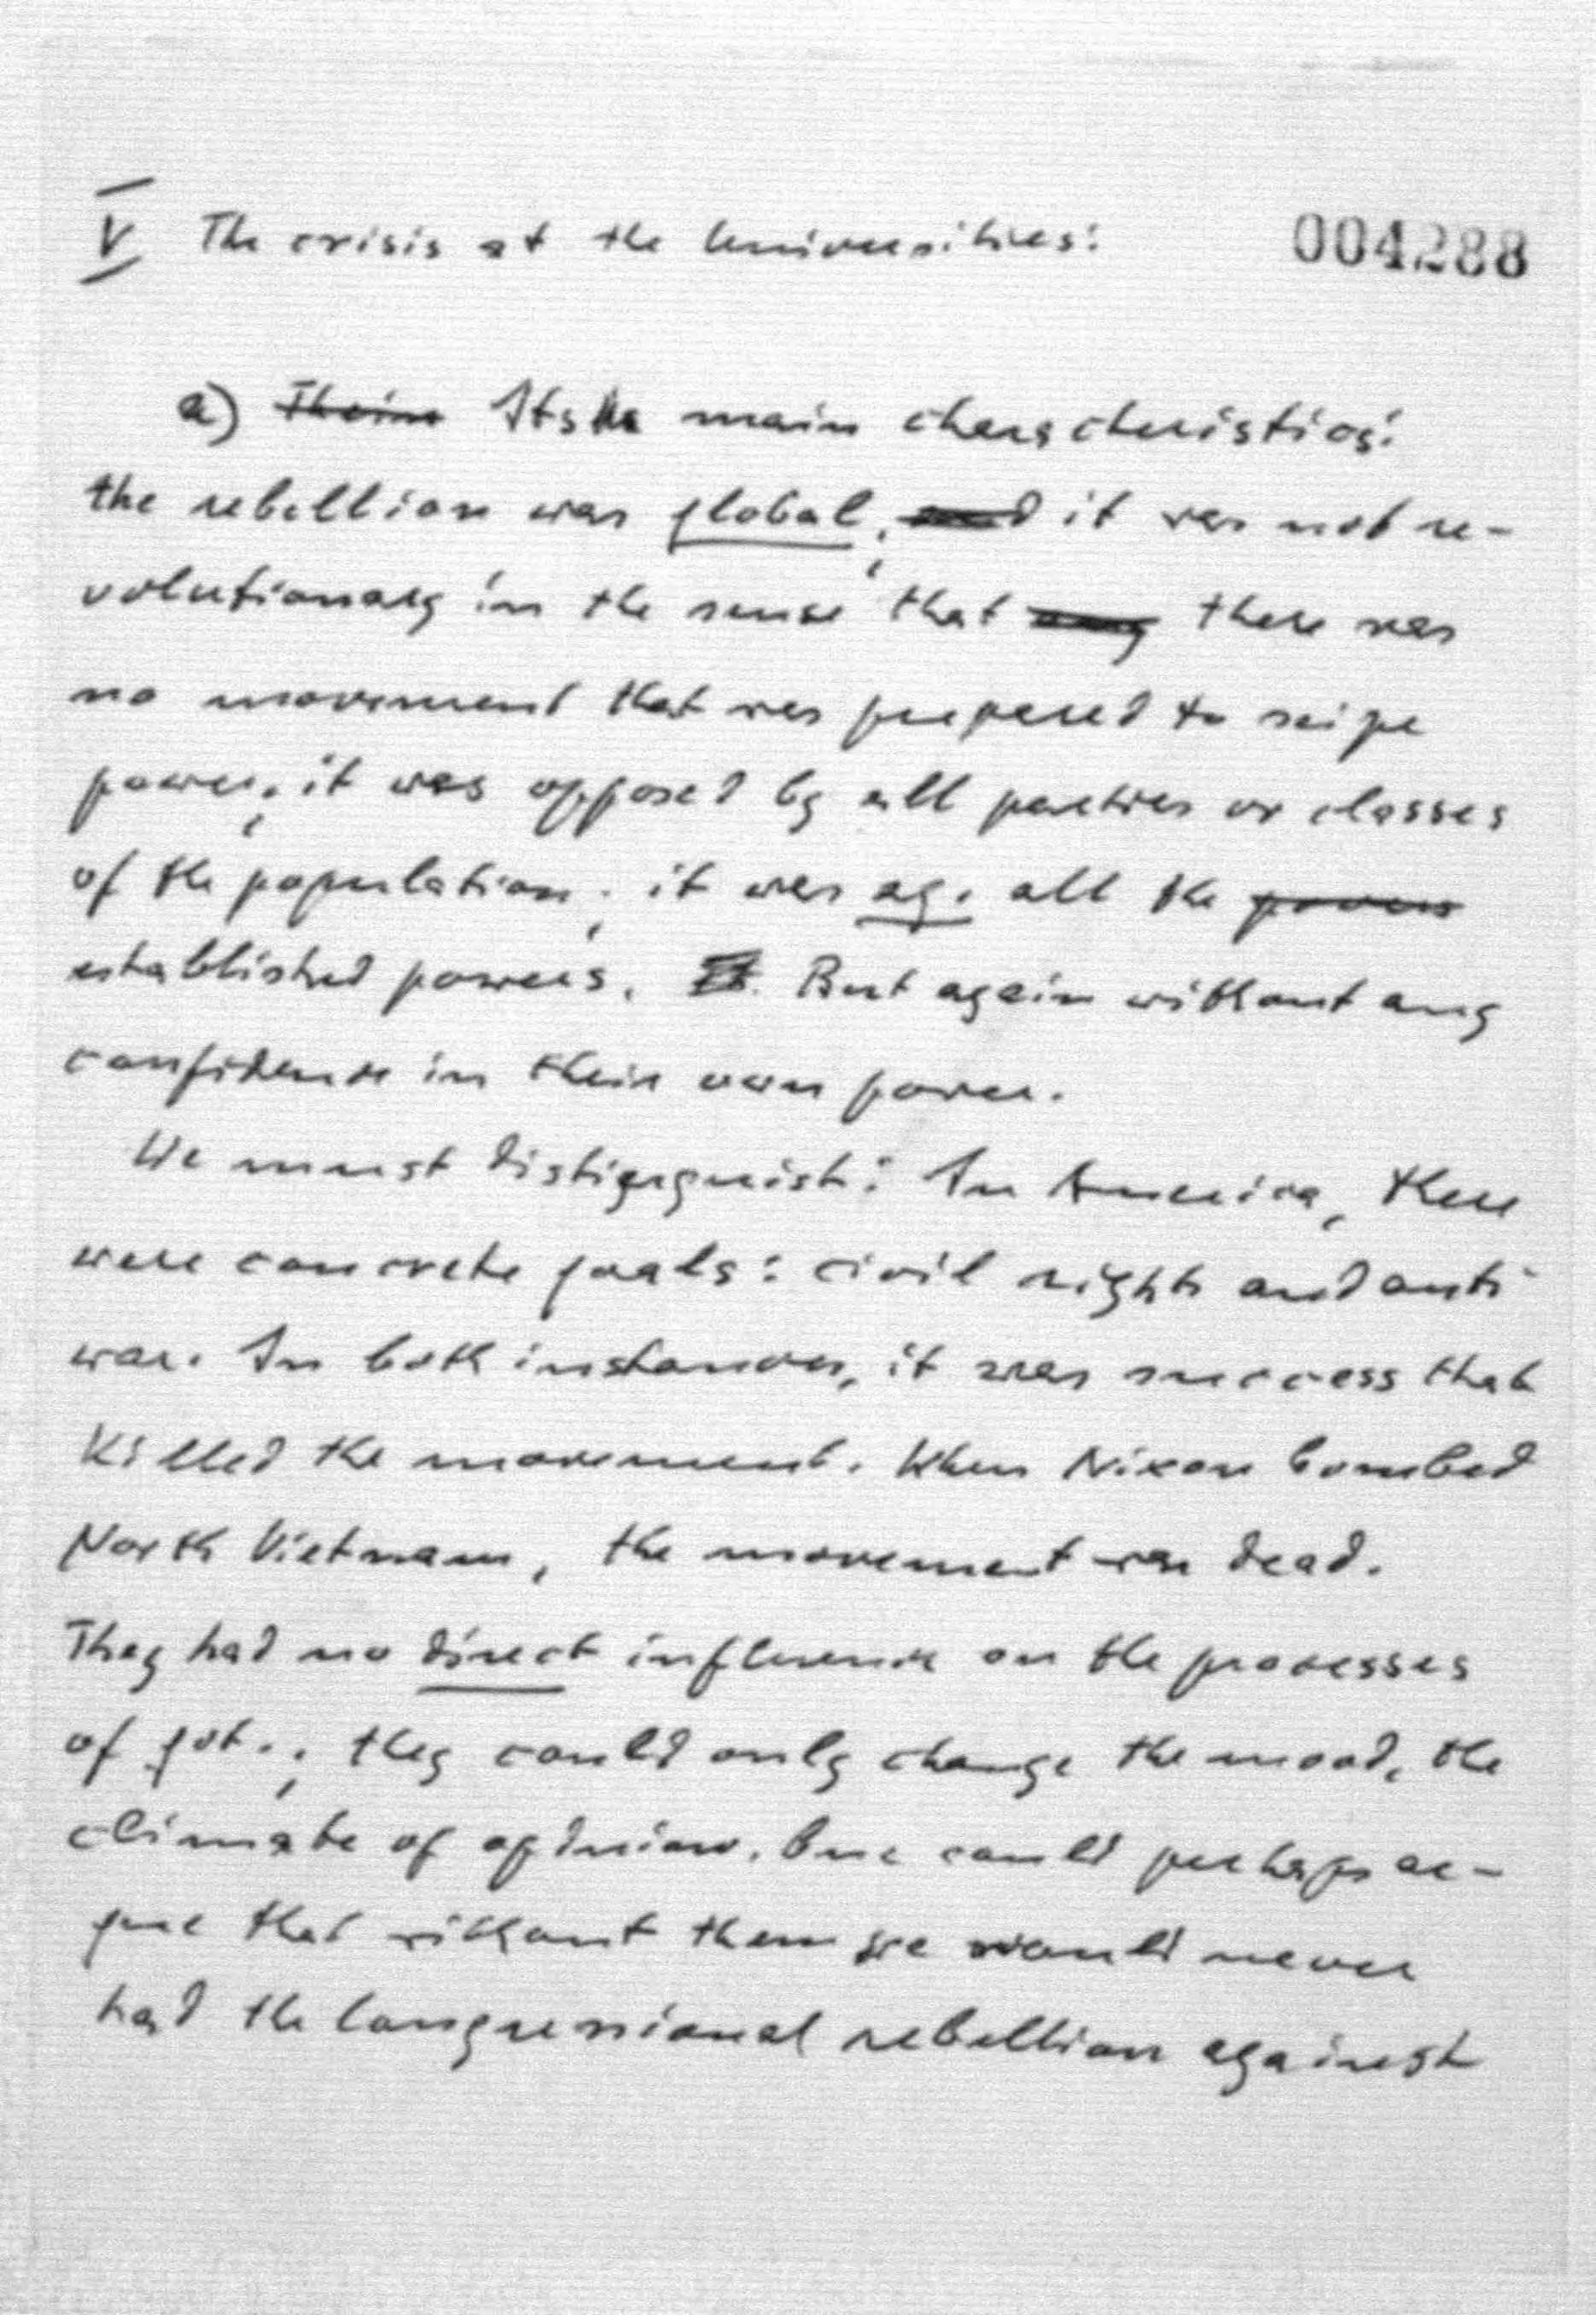 V The crisis at the Universities: 004288
a) Their Its main characteristics:
the rebellion was global; and it was not re-
volutionary in the sense that any there was
no movement that was prepared to seize
power; it was opposed by all parties or classes
of the population; it was ag. all the powers
established powers. It. But again without any
confidence in their own power.
We must distiguguish: In America, there
were concrete goals: civil rights and anti-
war. In both instances, it was success that
killed the movement. When Nixon bombed
North Vietnam, the movement was dead.
They had no direct influence on the processes
of gvt.; they could only change the mood, the
climate of opinion. One could perhaps ar-
gue that without them we would never
had the Congressional rebellion against